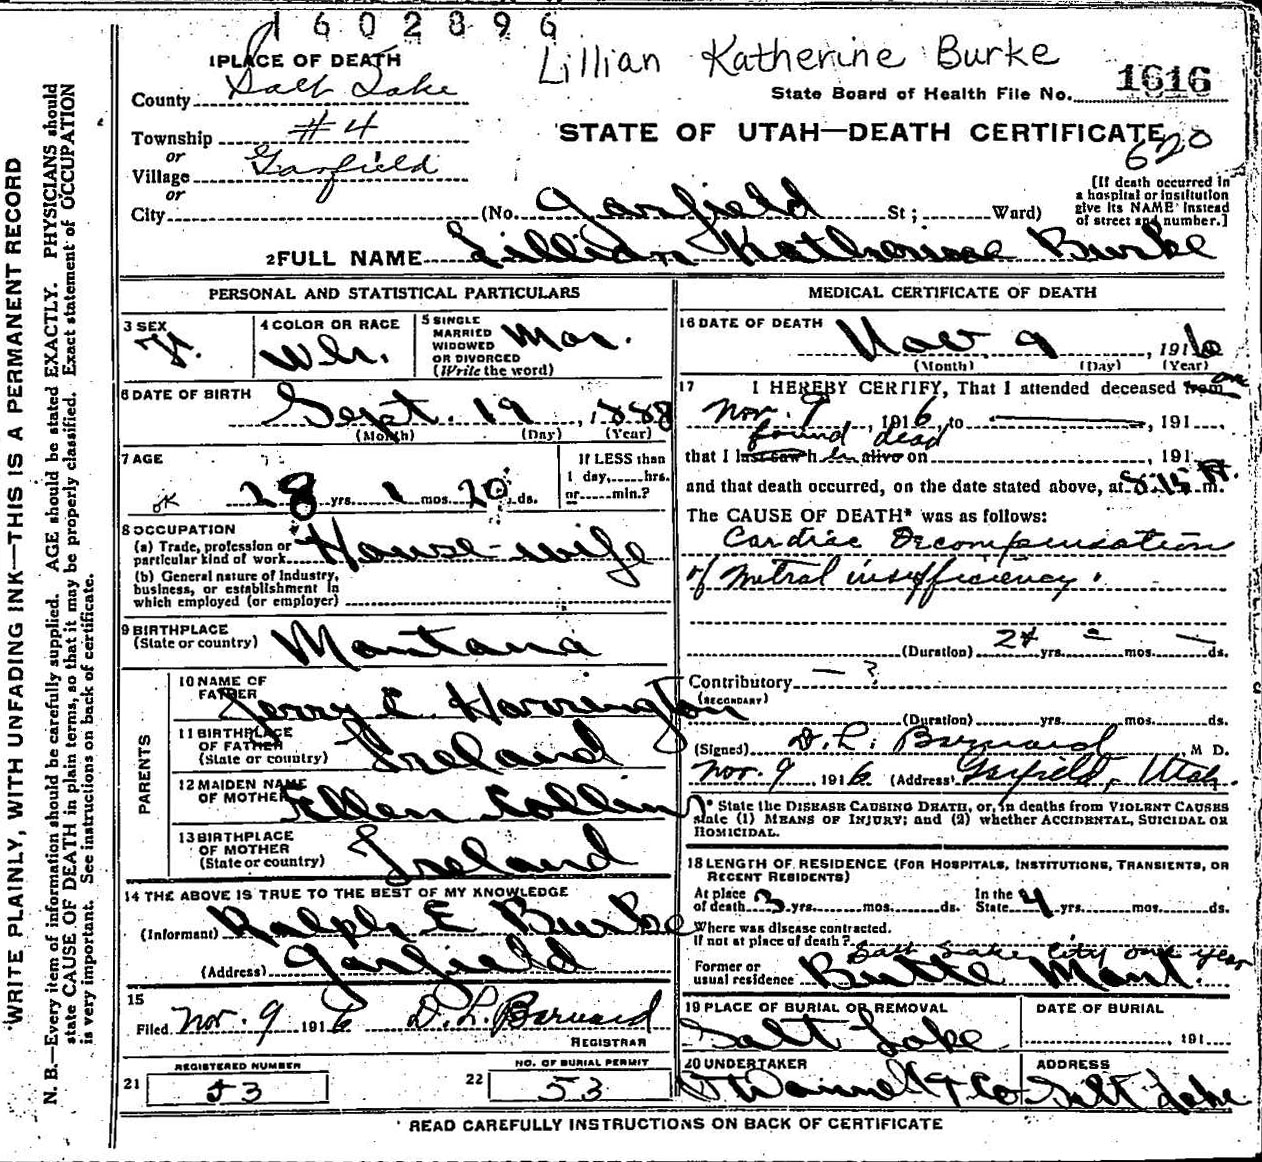 1602896
Lillian Katherine Burke
1 PLACE OF DEATH
County Salt Lake
State Board of Health File No. 1616
Township #4
STATE OF UTAH—DEATH CERTIFICATE
620
or
Village Garfield
or
City (No. Garfield St; Ward)
[If death occurred in a hospital or institution give its NAME instead of street and number.]
2 FULL NAME Lillian Katherine Burke
PERSONAL AND STATISTICAL PARTICULARS
3 SEX F.
4 COLOR OR RACE Wh.
5 SINGLE MARRIED WIDOWED OR DIVORCED (Write the word) Mar.
6 DATE OF BIRTH Sept. 19, 1888
(Month) (Day) (Year)
7 AGE
OK 28 yrs. 1 mos. 20 ds.
If LESS than 1 day, hrs. or min.?
8 OCCUPATION
(a) Trade, profession or particular kind of work House-wife
(b) General nature of industry, business, or establishment in which employed (or employer)
9 BIRTHPLACE (State or country) Montana
PARENTS
10 NAME OF FATHER Jerry C. Harrington
11 BIRTHPLACE OF FATHER (State or country) Ireland
12 MAIDEN NAME OF MOTHER Ellen Collins
13 BIRTHPLACE OF MOTHER (State or country) Ireland
14 THE ABOVE IS TRUE TO THE BEST OF MY KNOWLEDGE
(Informant) Ralph E Burke
(Address) Garfield
15
Filed Nov. 9 1916 D. L. Barnard
REGISTRAR
REGISTERED NUMBER
21 53
NO. OF BURIAL PERMIT
22 53
MEDICAL CERTIFICATE OF DEATH
16 DATE OF DEATH
Nov. 9, 1916
(Month) (Day) (Year)
17 I HEREBY CERTIFY, That I attended deceased from on
Nov. 9, 1916, to , 191
found dead
that I last saw h alive on 191
and that death occurred, on the date stated above, at 8:15 m.
The CAUSE OF DEATH* was as follows:
Cardiac Decompensation
of mitral insufficiency.
(Duration) yrs. mos. ds.
Contributory — ?
(SECONDARY)
(Duration) yrs. mos. ds.
(Signed) D. L. Barnard M D.
Nov. 9 1916 (Address) Garfield, Utah.
* State the DISEASE CAUSING DEATH, or, in deaths from VIOLENT CAUSES state (1) MEANS OF INJURY; and (2) whether ACCIDENTAL, SUICIDAL OR HOMICIDAL.
18 LENGTH OF RESIDENCE (FOR HOSPITALS, INSTITUTIONS, TRANSIENTS, OR RECENT RESIDENTS)
At place of death 3 yrs. mos. ds. In the State 4 yrs. mos. ds.
Where was disease contracted, if not at place of death?
Salt Lake City one year
Former or usual residence Butte Mont.
19 PLACE OF BURIAL OR REMOVAL
Salt Lake
DATE OF BURIAL
, 191
20 UNDERTAKER
& Co
ADDRESS
Salt Lake
READ CAREFULLY INSTRUCTIONS ON BACK OF CERTIFICATE
WRITE PLAINLY, WITH UNFADING INK—THIS IS A PERMANENT RECORD
N. B.—Every item of information should be carefully supplied. AGE should be stated EXACTLY. PHYSICIANS should
state CAUSE OF DEATH in plain terms, so that it may be properly classified. Exact statement of OCCUPATION
is very important. See instructions on back of certificate.